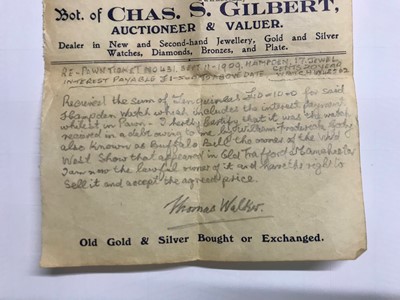 Bot. of CHAS. S. GILBERT,
AUCTIONEER & VALUER.
Dealer in New and Second-hand Jewellery, Gold and Silver
Watches, Diamonds, Bronzes, and Plate.
RE-PAWNTICKET NO 431. SEPT 11-1899, HAMPDEN, 17. JEWEL
INTEREST PAYABLE £1- ABOVE DATE
Received the sum of Ten guineas £10=10=0 for said
Hampden Watch which includes the interest payment
whilst in Pawn - I hereby Certify that it was the watch
received in a debt owing to me by William Frederick Cody
also Known as Buffalo Bill the owner of the Wild
West Show that appeared in Old Trafford Manchester
I am now the lawful owner of it and have the right to
sell it and accept the agreed price.
Thomas Walker.
Old Gold & Silver Bought or Exchanged.